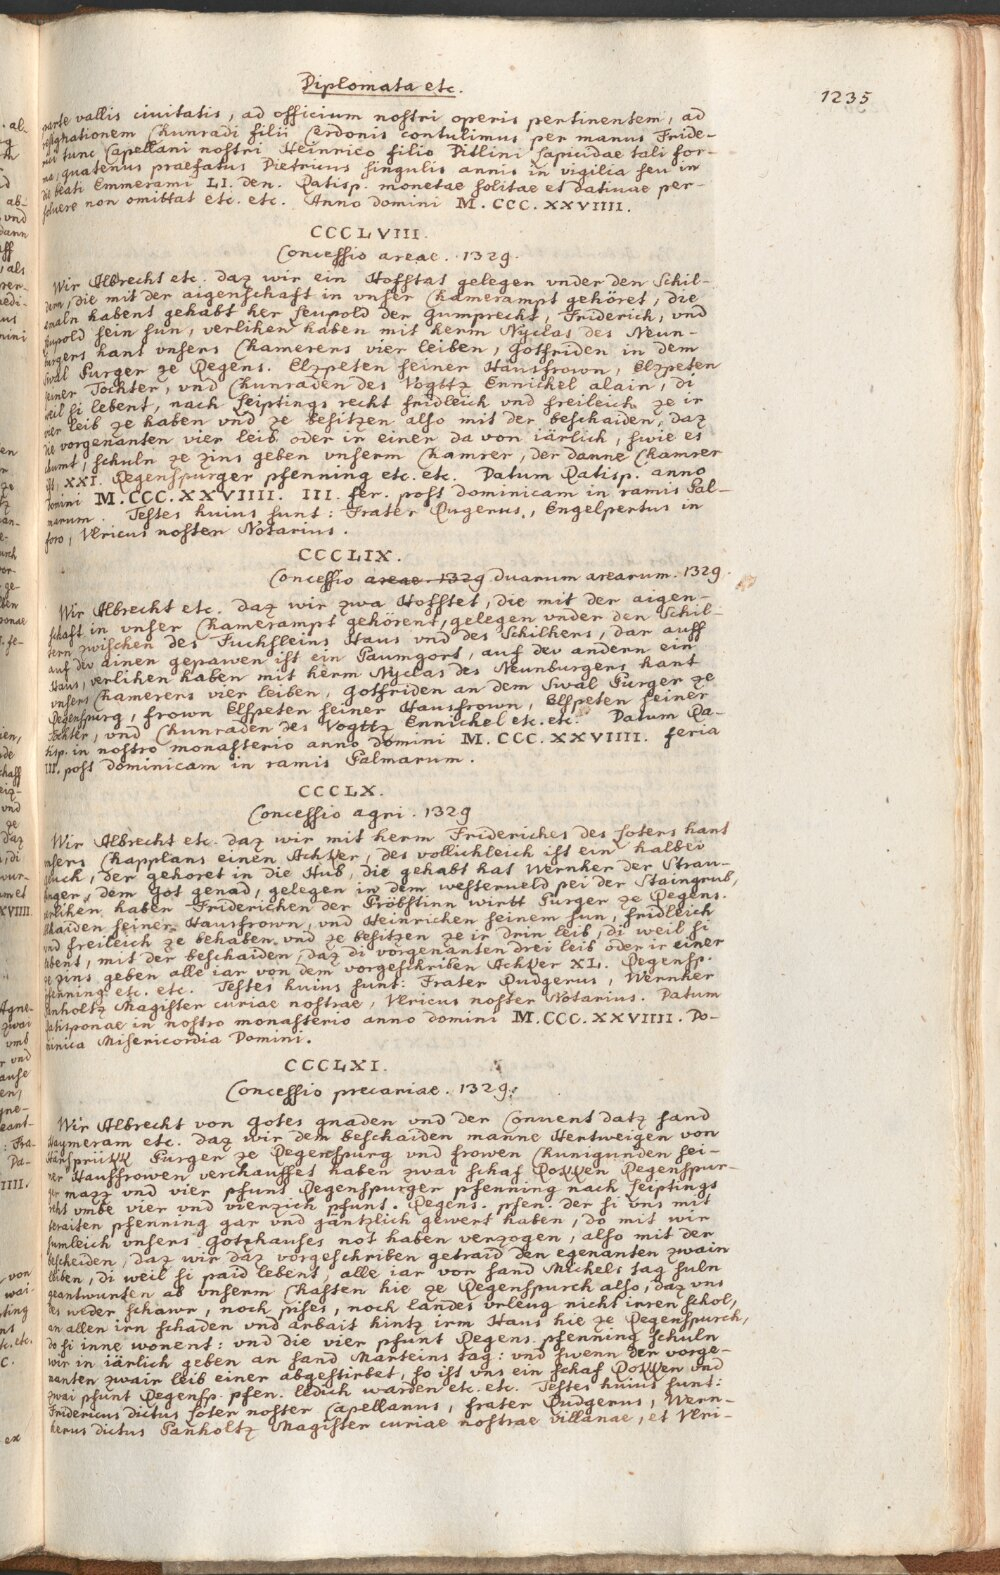 Diplomata etc.
1235
parte vallis civitatis, ad officium nostri operis pertinentem, ad
resignationem Chunradi filii Cerdonis contulimus per manus Fride-
rici tunc Capellani nostri Heinrico filio Ditlini Lapicidae tali for-
ma, quatenus praefatus Dietricus singulis annis in vigilia seu in
die beati Emmerami LI. den. Ratisp. monetae solitae et dativae per-
solvere non omittat etc. etc. Anno domini M. CCC. XXVIIII.
CCCLVIII.
Concessio areae. 1329.
Wir Albrecht etc. daz wir ein Hofstat gelegen vnder den Schil-
dern, die mit der aigenschaft in vnser Chamerampt gehöret, die
emaln habent gehabt her Leupold der Gumprecht, Friderich, vnd
Leupold sein sun, verlihen haben mit herm Nyclas des Neun-
burgers hant vnsers Chamerers vier leiben, Gotfriden in dem
Swal Purger ze Regens. Elzpeten seiner Hausfrown, Elzpeten
seiner Tochter, vnd Chunraden des Vogttz Ennichel alain, di
weil si lebent, nach Leiptings recht fridleich vnd freileich ze ir
vier leib ze haben vnd ze besitzen also mit der beschaiden, daz
die vorgenanten vier leib oder ir einer da von iärlich, swie es
chumt, schuln ze zins geben vnserm Chamrer, der danne Chamrer
ist, XXI. Regenspurger pfenning etc. etc. Datum Ratisp. anno
domini M. CCC. XXVIIII. III. fer. post dominicam in ramis Pal-
marum. Testes huius sunt: Frater Rugerus, Engelpertus in
foro, Vlricus noster Notarius.
CCCLIX.
Concessio areae 1329 duarum arearum. 1329.
Wir Albrecht etc. daz wir zwa Hofstet, die mit der aigen-
schaft in vnser Chamerampt gehörent, gelegen vnder den Schil-
tern zwischen des Fuchsleins Haus vnd des Schilhers, dar auff
auf der ainen gepawen ist ein Paumgort, auf der andern ein
Haus, verlihen haben mit herm Nyclas des Neunburgers hant
vnsers Chamerers vier leiben, Gotfriden an dem Swal Purger ze
Regenspurg, frown Elspeten seiner Hausfrown, Elspeten seiner
Tochter, vnd Chunraden des Vogttz Ennichel etc. etc. Datum Ra-
tisp. in nostro monasterio anno domini M. CCC. XXVIIII. feria
III. post dominicam in ramis Palmarum.
CCCLX.
Concessio agri. 1329
Wir Albrecht etc. daz wir mit herm Frideriches des Soters hant
vnsers Chapplans einen Achker, des vollichleich ist ein halbei
peuck, der gehoret in die Hub, die gehabt hat Wernher der Strau-
binger, dem Got genad, gelegen in dem westerueld pei der Staingrub,
verlihen haben Friderichen der Pröbstinn wirtt Purger ze Regens.
Alhaiden seiner Hausfrown, vnd Heinrichen seinem sun, fridleich
vnd freileich ze behaben vnd ze besitzen ze ir drin leib, di weil si
lebent, mit der beschaiden, daz di vorgenanten drei leib oder ir einer
ze zins geben alle iar von dem vorgeschriben Achker XL. Regensp.
pfenning etc. etc. Testes huius sunt: Frater Rudgerus, Wernher
Panholtz Magister curiae nostrae, Vlricus noster Notarius. Datum
Ratisponae in nostro monasterio anno domini M. CCC. XXVIIII. Do-
minica Misericordia Domini.
CCCLXI.
Concessio precariae. 1329.
Wir Albrecht von Gotes gnaden vnd der Conuent datz sand
Haymeram etc. daz wir dem beschaiden manne Hertweigen von
Hänsprükk Purger ze Regenspurg vnd frowen Chunigunden sei-
ner Hausfrowen verchauffet haben zwai schaf Rokken Regenspur-
ger mazz vnd vier pfunt Regenspurger pfenning nach Leiptings
recht vmbe vier vnd vierzich pfunt. Regens. pfen. der si vns mit
beraiten pfenning gar vnd gäntzlich gewert haben, do mit wir
sumleich vnsers Gotzhauses not haben verzogen, also mit der
bescheiden, daz wir daz vorgeschriben getraid den egenanten zwain
leiben, di weil si paid lebent, alle iar vor sand Michels tag suln
geantwurten ab vnserm Chasten hie ze Regenspurch also, daz vns
des weder schawr, noch pises, noch landes vrleug nicht irren schol,
an allen irn schaden vnd arbait hintz irm Haus hie ze Regenspurch,
do si inne wonent: vnd die vier pfunt Regens. pfenning schuln
wir in iärlich geben an sand Marteins tag: vnd swenn der vorge-
nanten zwair leib einer abgestirbet, so ist vns ein schaf Rokken vnd
zwai pfunt Regensp. pfen. ledich warden etc. etc. Testes huius sunt:
Fridericus dictus Soter noster Capellanus, frater Rudgerus, Wern-
herus dictus Panholtz Magister curiae nostrae villanae, et Vlri-